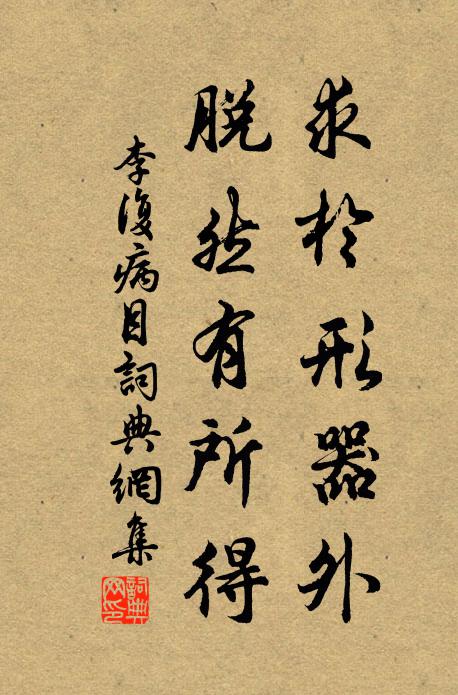 求於形器外
脱然有所得
李復病目詞典網集
詞典网印